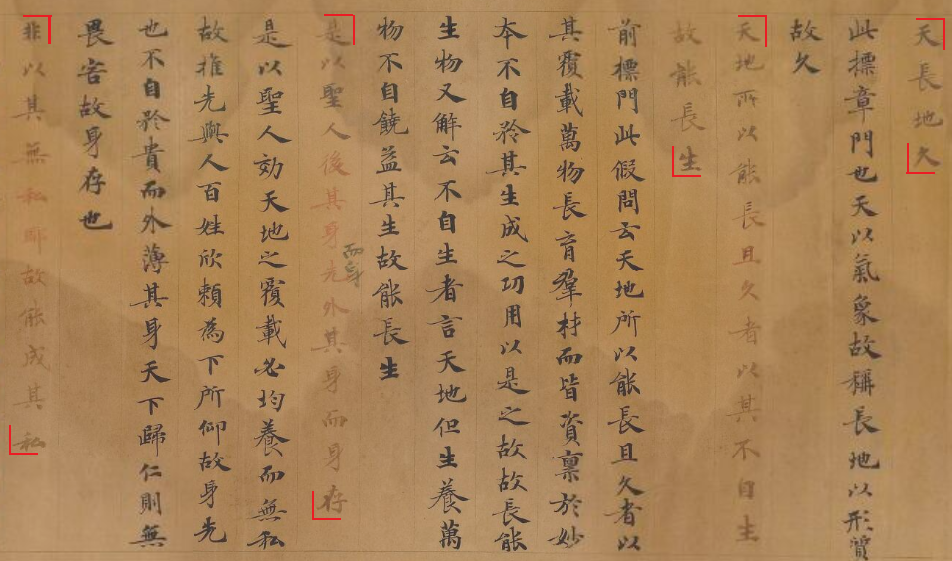 天長地久
此標章門也天以氣象故稱長地以形質
故久
天地所以能長且久者以其不自生
故能長生
前標門此假問云天地所以能長且久者以
其覆載萬物長育羣材而皆資稟於妙
本不自矜其生成之功用以是之故故長能
生物又解云不自生者言天地但生養萬
物不自饒益其生故能長生
而身
是以聖人後其身先外其身而身存
是以聖人効天地之覆載必均養而無私
故推先與人百姓欣賴為下所仰故身先
也不自矜貴而外薄其身天下歸仁則無
畏害故身存也
非以其無私耶故能成其私